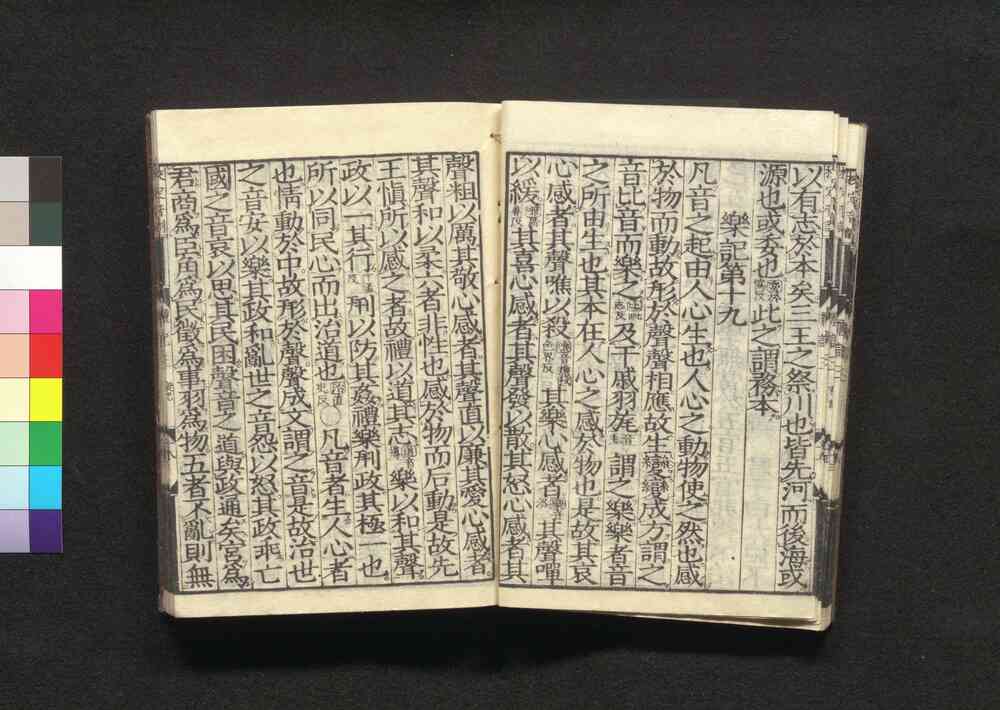 以有志於本矣三王之祭川也皆先河而後海或
源也或委也此之謂務本
樂記第十九
凡音之起由人心生也人心之動物使之然也感
於物而動故形於聲聲相應故生變變成方謂之
音比音而樂之及干戚羽旄謂之樂樂者音
之所由生也其本在人心之感於物也是故其哀
心感者其聲噍以殺其樂心感者其聲嘽
以緩其喜心感者其聲發以散其怒心感者其
聲粗以厲其敬心感者其聲直以廉其愛心感者
其聲和以柔六者非性也感於物而后動是故先
王愼所以感之者故禮以道其志樂以和其聲
政以一其行刑以防其姦禮樂刑政其極一也
所以同民心而出治道也○凡音者生人心者
也情動於中故形於聲聲成文謂之音是故治世
之音安以樂其政和亂世之音怨以怒其政乖亡
國之音哀以思其民困聲音之道與政通矣宮爲
君商爲臣角爲民徵爲事羽爲物五者不亂則無